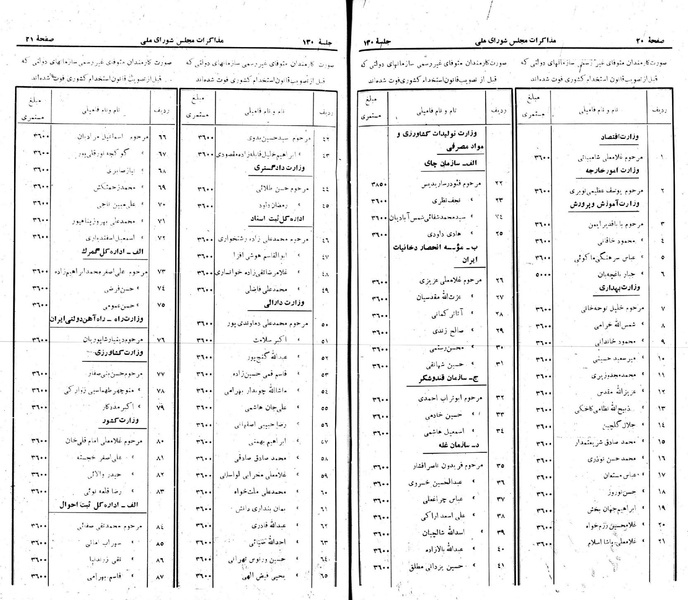 صفحهٔ ۲۰
مذاکرات مجلس شورای ملی
جلسهٔ ۱۳۰
صورت کارمندان متوفای غیر رسمی سازمانهای دولتی که
قبل از تصویب قانون استخدام کشوری فوت شده‌اند
ردیف نام و نام فامیلی مبلغ مستمری
وزارت اقتصاد
۱ مرحوم غلامعلی ۳۶۰۰
وزارت امور خارجه
۲ مرحوم یوسف عظیمی نوبری ۳۶۰۰
وزارت آموزش و پرورش
۳ مرحوم باباقدیر ایمن ۳۶۰۰
۴ » محمود خاقانی ۳۶۰۰
۵ » عباس سرهنگی ماکوئی ۳۶۰۰
۶ » جبار باغچه‌بان ۵۰۰۰
وزارت بهداری
۷ مرحوم خلیل نوحه‌خانی ۳۶۰۰
۸ » شمس‌الله خرامی ۳۶۰۰
۹ » محمود خاندانی ۳۶۰۰
۱۰ » میرسعید حسینی ۳۶۰۰
۱۱ » محمد مجدوزیری ۳۶۰۰
۱۲ » عزیزالله مقدس ۳۶۰۰
۱۳ » ذبیح‌الله نظامی ۳۶۰۰
۱۴ » جلال گلچین ۳۶۰۰
۱۵ » محمد صادق شریعتمدار ۳۶۰۰
۱۶ » محمد حسن نوذری ۳۶۰۰
۱۷ » عباس ۳۶۰۰
۱۸ » حسن نوروز ۳۶۰۰
۱۹ » ابراهیم جهان بخش ۳۶۰۰
۲۰ » غلامحسین رزم‌خواه ۳۶۰۰
۲۱ » غلامعلی پاشا اسلام ۳۶۰۰
ردیف نام و نام فامیلی مبلغ مستمری
وزارت تولیدات کشاورزی و
مواد مصرفی
الف ـ سازمان چای
۲۲ مرحوم ۳۸۵۰
۲۳ » نجف نظری ۳۶۰۰
۲۴ » سید محمد شفائی شمس آبادیان ۳۶۰۰
۲۵ » هادی داودی ۳۶۰۰
ب ـ مؤسسه انحصار دخانیات
ایران
۲۶ مرحوم غلامعلی عزیزی ۳۶۰۰
۲۷ » عزت‌الله مقدسیان ۳۶۰۰
۲۸ » آثار کمانی ۳۶۰۰
۲۹ » صالح زندی ۳۶۰۰
۳۰ » محسن رستمی ۳۶۰۰
۳۱ » حسین شهانقی ۳۶۰۰
ج ـ سازمان قند و شکر
۳۲ مرحوم ابوتراب احمدی ۳۶۰۰
۳۳ » حسین خادمی ۳۶۰۰
۳۴ » اسمعیل هاشمی ۳۶۰۰
د ـ سازمان غله
۳۵ مرحوم فریدون ناصر افشار ۳۶۰۰
۳۶ » عبدالحسین خسروی ۳۶۰۰
۳۷ » عباس چراغعلی ۳۶۰۰
۳۸ » علی اسعد اراکی ۳۶۰۰
۳۹ » اسدالله شالچیان ۳۶۰۰
۴۰ » عبدالله بالازاده ۳۶۰۰
۴۱ » حسین یزدانی مطلق ۳۶۰۰
جلسهٔ ۱۳۰
مذاکرات مجلس شورای ملی
صفحهٔ ۲۱
صورت کارمندان متوفای غیر رسمی سازمانهای دولتی که
قبل از تصویب قانون استخدام کشوری فوت شده‌اند
ردیف نام و نام فامیلی مبلغ مستمری
۴۲ مرحوم سید حسین بدوی ۳۶۰۰
۴۳ » ابراهیم خلیل ۳۶۰۰
وزارت دادگستری
۴۴ مرحوم حسن طلائی ۳۶۰۰
۴۵ » رمضان داود ۳۶۰۰
اداره کل ثبت اسناد
۴۶ مرحوم محمدعلی زاده رشتخواری ۳۶۰۰
۴۷ » ابوالقاسم هوشی افزا ۳۶۰۰
۴۸ » غلامرضا تقی‌زاده خوانساری ۳۶۰۰
۴۹ » محمدعلی فاضلی ۳۶۰۰
وزارت دارائی
۵۰ مرحوم محمدعلی دماوندی پور ۳۶۰۰
۵۱ » اکبر سلامت ۳۶۰۰
۵۲ » عبدالله گنج‌پور ۳۶۰۰
۵۳ » قاسم قمی حسین‌زاده ۳۶۰۰
۵۴ » ماشاالله چوبدار بهرامی ۳۶۰۰
۵۵ » علی جان هاشمی ۳۶۰۰
۵۶ » رضا حبیبی اصفهانی ۳۶۰۰
۵۷ » ابراهیم بهمنی ۳۶۰۰
۵۸ » محمد صادق صادقی ۳۶۰۰
۵۹ » غلامعلی محرابی لواسانی ۳۶۰۰
۶۰ » محمدعلی ملت‌خواه ۳۶۰۰
۶۱ » دانش ۳۶۰۰
۶۲ » عبدالله قادری ۳۶۰۰
۶۳ » احدالله ضیائی ۳۶۰۰
۶۴ » حسین تهرانی ۳۶۰۰
۶۵ » یحیی فیض الهی ۳۶۰۰
ردیف نام و نام فامیلی مبلغ مستمری
۶۶ مرحوم اسماعیل مرادیان ۳۶۰۰
۶۷ » گوگچه نورقلی‌پور ۳۶۰۰
۶۸ » ایاز صابری ۳۶۰۰
۶۹ » محمد زحمتکش ۳۶۰۰
۷۰ » علی مبین تاجی ۳۶۰۰
۷۱ » محمدعلی بهروز پناهپور ۳۶۰۰
۷۲ » اسمعیل اسفندیاری ۳۶۰۰
الف ـ اداره کل گمرک
۷۳ مرحوم علی اصغر محمد ابراهیم زاده ۳۶۰۰
۷۴ » حسن فرضی ۳۶۰۰
۷۵ » حسن عمومی ۳۶۰۰
وزارت راه ـ راه‌آهن دولتی ایران
۷۶ مرحوم دینیار شاپوریان ۳۶۰۰
وزارت کشاورزی
۷۷ مرحوم حسن بنی صفار ۳۶۰۰
۷۸ » منوچهر طهماسبی زوارکی ۳۶۰۰
۷۹ » اکبر مددکار ۳۶۰۰
وزارت کشور
۸۰ مرحوم غلامعلی امام قلی خان ۳۶۰۰
۸۱ » علی اصغر خجسته ۳۶۰۰
۸۲ » حیدر والائی ۳۶۰۰
۸۳ » رضا قلعه نوئی ۳۶۰۰
الف ـ اداره کل ثبت احوال
۸۴ مرحوم محمدتقی صفائی ۳۶۰۰
۸۵ » سهراب امانی ۳۶۰۰
۸۶ » تقی زرندنیا ۳۶۰۰
۸۷ » قاسم بهرامی ۳۶۰۰